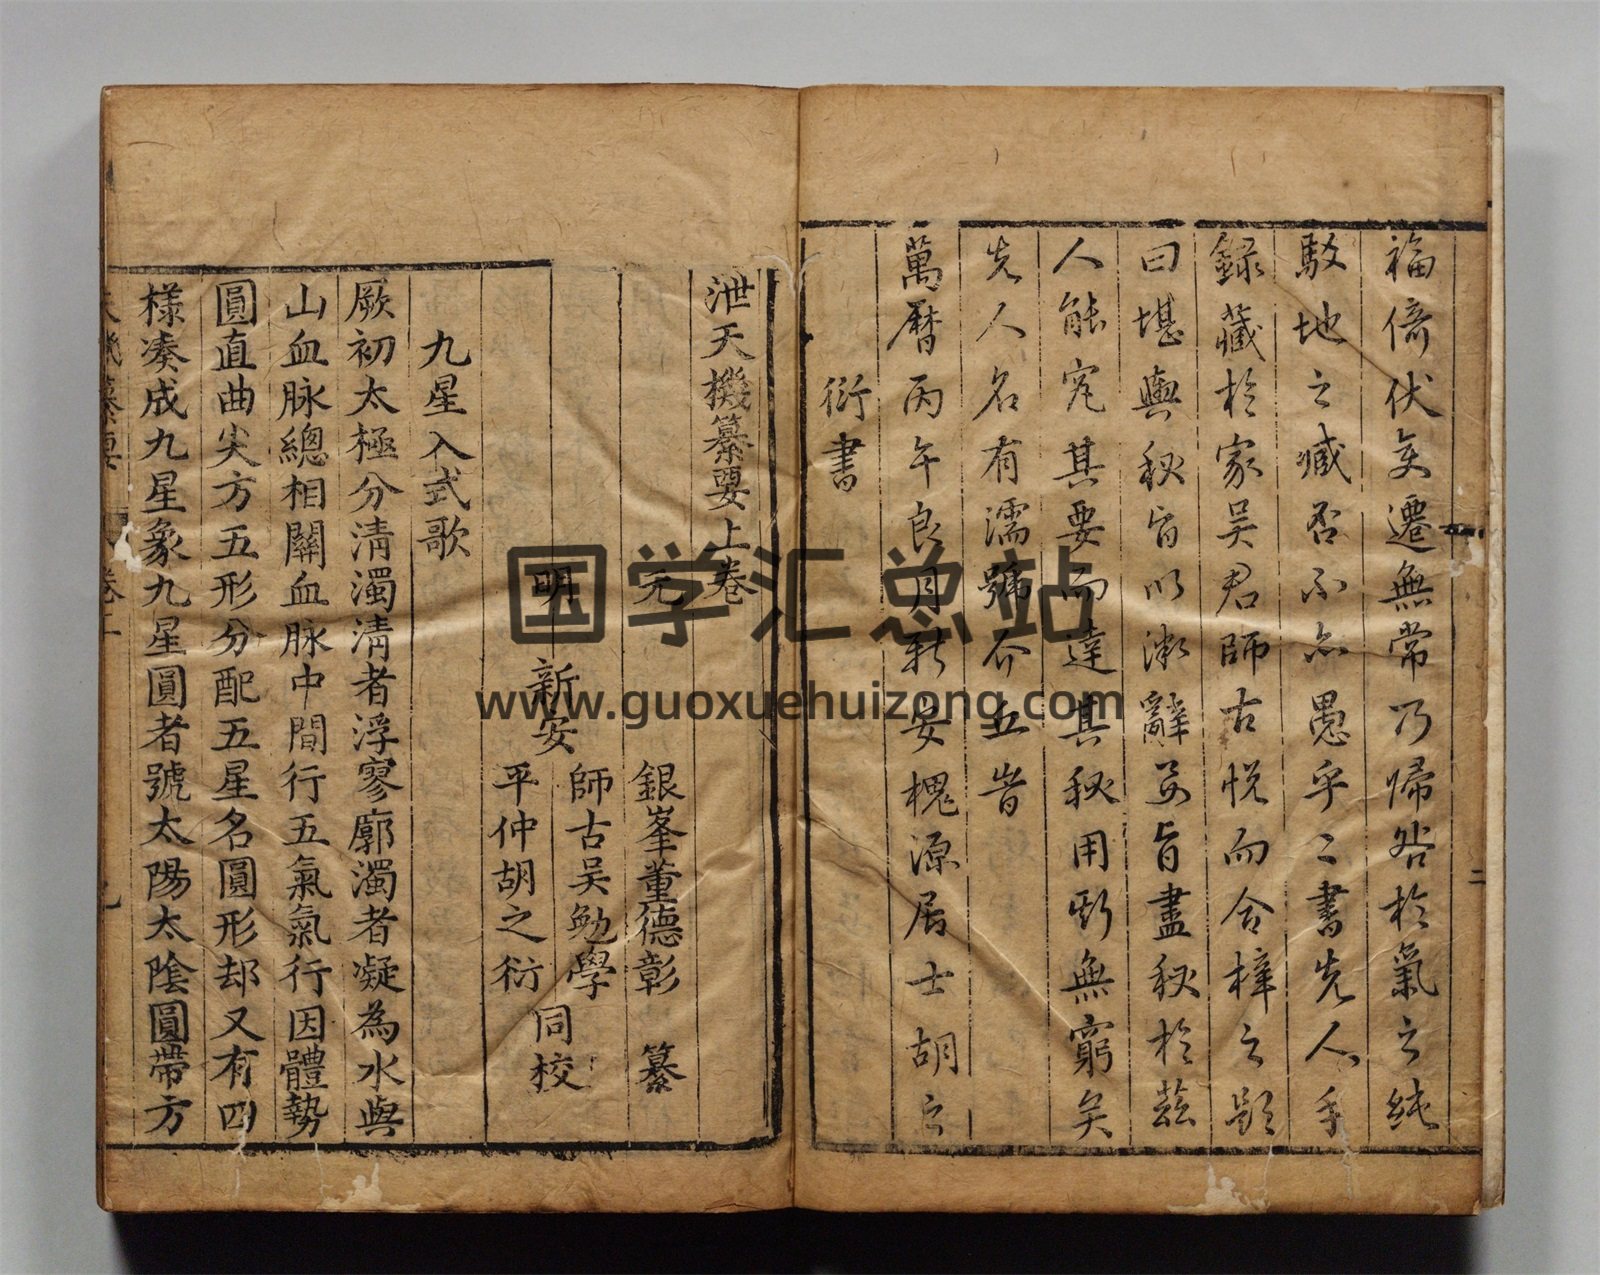 福倚伏矣遷無常乃歸咎於氣之純
駁地之臧否不亦愚乎二書先人手
錄藏於家吳君師古悅而合梓之題
曰堪輿秘旨以漱辭要旨盡秘於茲
人能究其要而達其秘用斯無窮矣
先人名有濡號介五岩
萬曆丙午良月新安槐源居士胡之
衍書
二
泄天機纂要上卷
元 銀峯董德彰 纂
明 新安 師古吳勉學 同校
平仲胡之衍
九星入式歌
厥初太極分清濁清者浮寥廓濁者凝為水與
山血脉總相關血脉中間行五氣氣行因體勢
圓直曲尖方五形分配五星名圓形却又有四
樣湊成九星象九星圓者號太陽太陰圓帶方
天機纂要
卷上
国学汇总站
www.guoxuehuizong.com